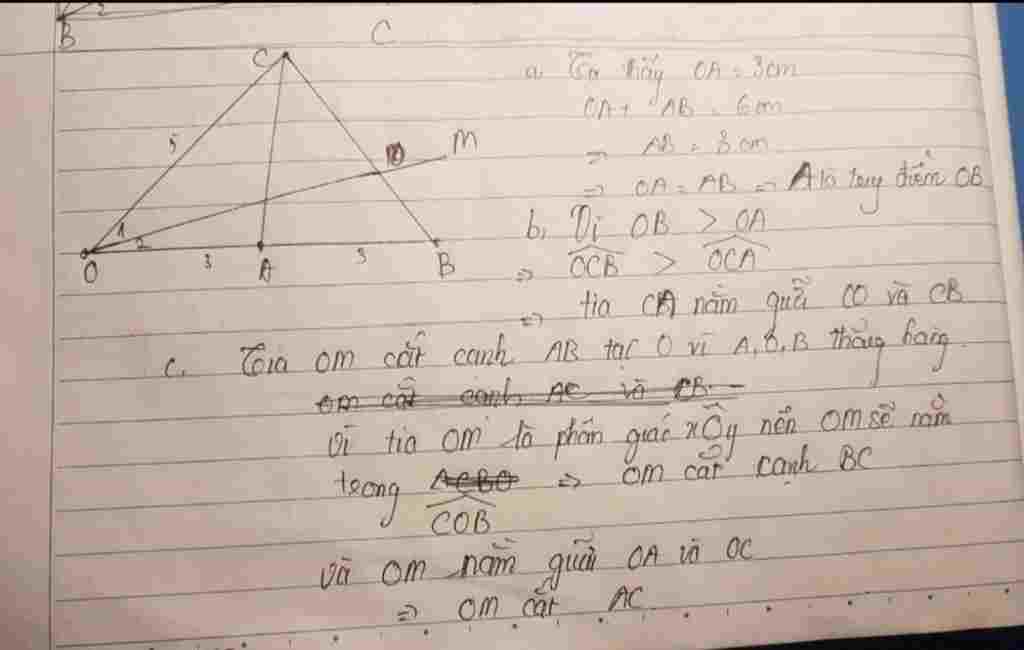 B
C
C
5
M
D
1
2
O
3
A
3
B
a. Ta thấy OA = 3cm
OA + AB = 6cm
=> AB = 3cm
=> OA = AB => A là tung điểm OB
b, Vì OB > OA
=> OCB > OCA
=> tia CA nằm giữa CO và CB
c. Tia OM cắt cạnh AB tại O vì A, O, B thẳng hàng.
OM cắt cạnh AC và CB
Vì tia OM là phân giác xOy nên OM sẽ nằm
trong ACBO => OM cắt cạnh BC
COB
và OM nằm giữa OA và OC
=> OM cắt AC